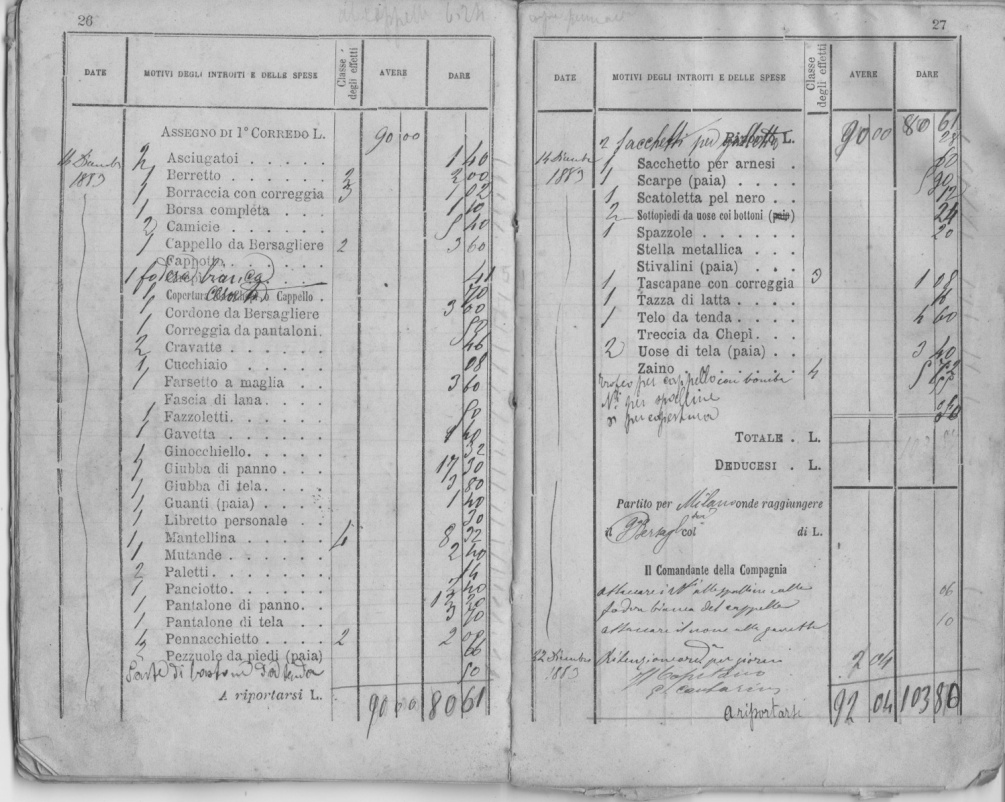 26
DATE MOTIVI DEGLI INTROITI E DELLE SPESE Classe degli effetti AVERE DARE
ASSEGNO DI 1º CORREDO L. 90 00
1883
2 Asciugatoi . . . . . 1 40
1 Berretto . . . . . . 2 2 00
1 Borraccia con correggia 3 1 02
1 Borsa completa . . . 1 10
2 Camicie . . . . . . 5 40
1 Cappello da Bersagliere 2 3 60
Cappotto
1 fodera bianca 41
Copertura Cappello . 70
1 Cordone da Bersagliere 3 00
Correggia da pantaloni.
2 Cravatte . . . . . . 46
1 Cucchiaio . . . . . 08
1 Farsetto a maglia . . 3 60
Fascia di lana. . . . .
1 Fazzoletti. . . . . . 50
1 Gavetta . . . . . . 1 40
1 Ginocchiello. . . . . 32
1 Giubba di panno . . . 17 30
1 Giubba di tela. . . . . 3 80
1 Guanti (paia) . . . . 1 40
1 Libretto personale . . 30
1 Mantellina . . . . . 4 8 32
1 Mutande . . . . . . 2 40
2 Paletti. . . . . . . 14
1 Panciotto. . . . . .
1 Pantalone di panno. .
1 Pantalone di tela . . 3 70
Pennacchietto . . . . 2 2 00
2 Pezzuolo da piedi (paia) 66
di bastone da tenda 50
A riportarsi L. 90 00 80 61
27
DATE MOTIVI DEGLI INTROITI E DELLE SPESE Classe degli effetti AVERE DARE
2 Sacchetti per L. 90 00 80 61
1883
1 Sacchetto per arnesi .
1 Scarpe (paia) . . . .
1 Scatoletta pel nero . .
2 Sottopiedi da uose coi bottoni (paia) 24
1 Spazzole . . . . . . 20
Stella metallica . . .
Stivalini (paia) . . .
1 Tascapane con correggia 3 1 08
1 Tazza di latta . . . . 16
1 Telo da tenda . . . . 4 60
Treccia da Chepì. . .
2 Uose di tela (paia) . . 3 40
Zaino . . . . . . . 4
Trofeo per cappello con bomba
Nº per spalline
" per copertura
TOTALE . L.
DEDUCESI . L.
Partito per Milano onde raggiungere
il Bersagl col di L.
Il Comandante della Compagnia
attaccare i Nº alle spalline e alla 06
fodera bianca del cappello
attaccare il nome alla gavetta 10
22 1883 per giorni 2 04
Il Capitano
a riportarsi 92 04 103 80